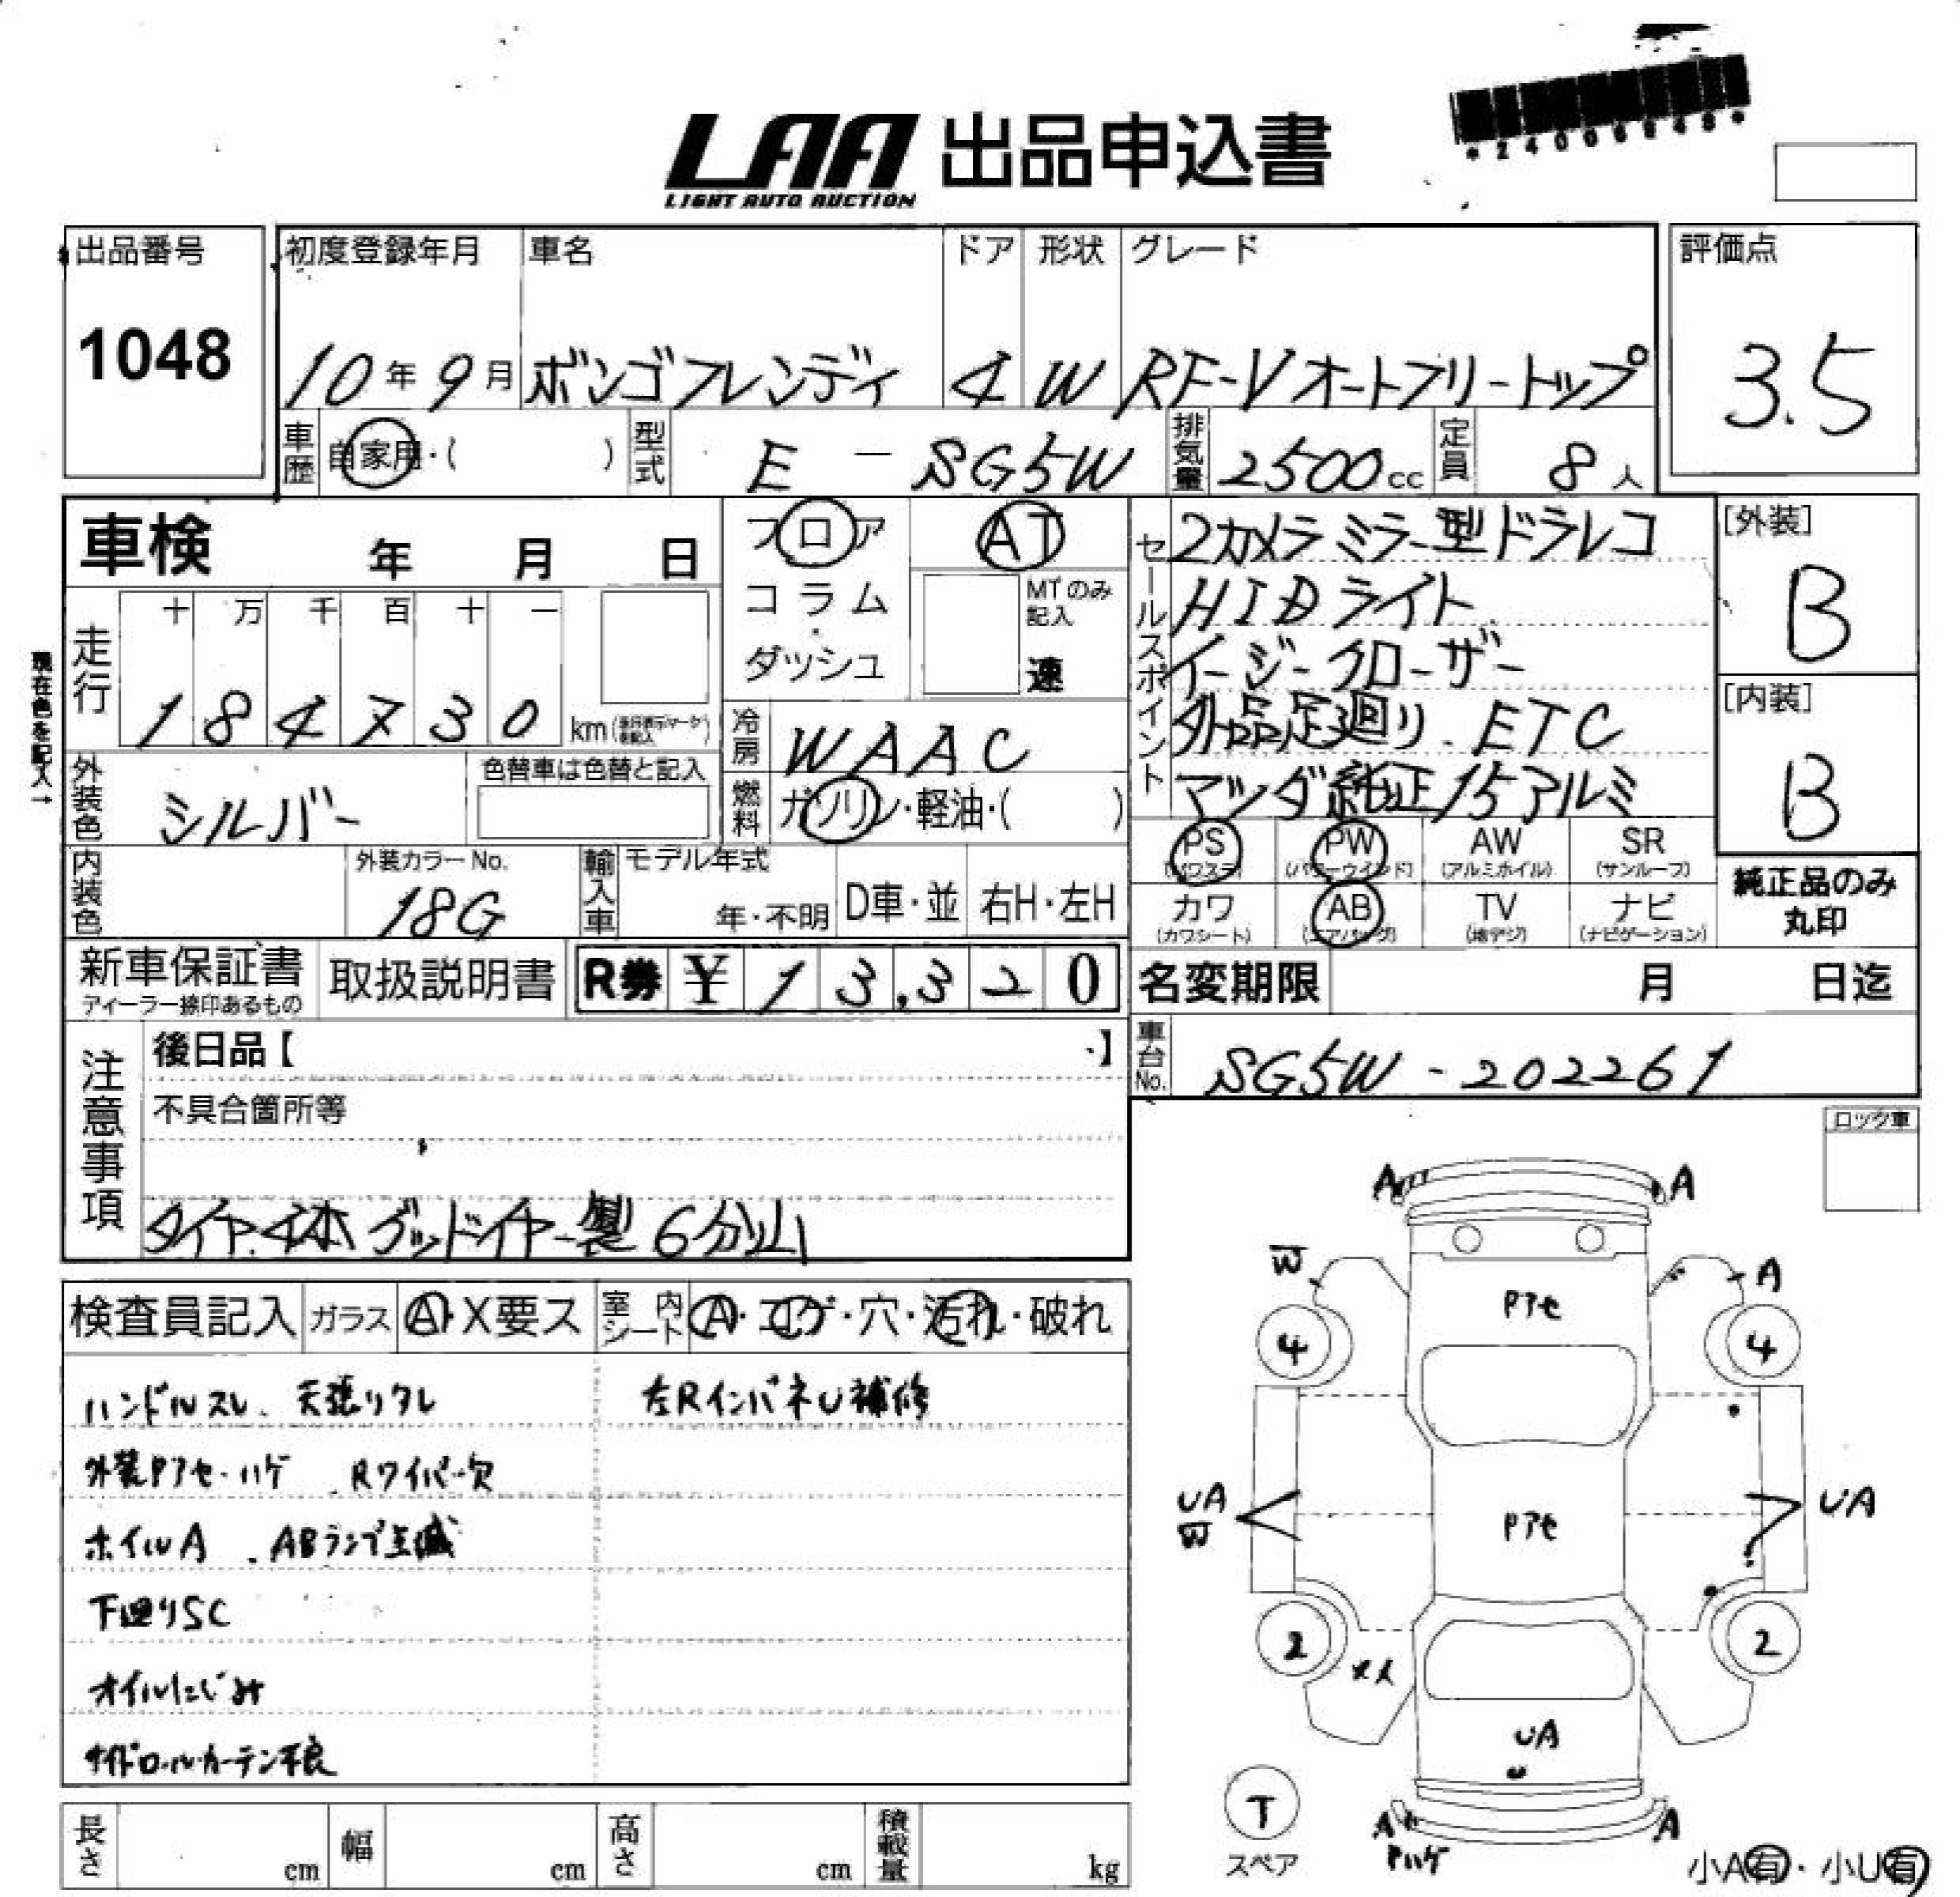 LAA 出品申込書
LIGHT AUTO AUCTION
出品番号
1048
初度登録年月 車名 ドア 形状 グレード
10年 9月 ボンゴフレンディ 4 W RF-Vオートフリートップ
評価点
3.5
車歴 自家用・( ) 型式 E － SG5W 排気量 2500cc 定員 8人
車検 年 月 日
フロア
コラム・ダッシュ
AT
MTのみ記入
速
現在色を記入→
走行 十 万 千 百 十 一
184730 km
セールスポイント
2カメラミラー型ドラレコ
HIDライト
イージークローザー
外品足廻り. ETC
マツダ純正15アルミ
[外装]
B
[内装]
B
冷房 WAAC
燃料 ガソリン・軽油・( )
外装色 シルバー
色替車は色替と記入
内装色
外装カラーNo.
18G
輸入車 モデル年式 年・不明 D車・並 右H・左H
PS (パワステ) PW (パワーウインド) AW (アルミホイル) SR (サンルーフ)
カワ (カワシート) AB (エアバッグ) TV (地デジ) ナビ (ナビゲーション)
純正品のみ
丸印
新車保証書
ディーラー捺印あるもの
取扱説明書
R券 ¥ 13,320
名変期限 月 日迄
車台No. SG5W - 202261
注意事項
後日品【 】
不具合箇所等
タイヤ.4本 グッドイヤー製 6分山
ロック車
検査員記入 ガラス A・X要ス 室内シート A・コゲ・穴・汚れ・破れ
ハンドルスレ、天張リタレ
左RインパネU補修
外装Pアセ・ハゲ .Rワイパー欠
ホイルA .ABランプ点滅
下廻りSC
オイルにじみ
サイドロールカーテン不良
A A
W A
Pアセ
4 4
UA
W
Pアセ
UA
2 2
UA
U
T
スペア
A A
Pハゲ
小A有・小U有
長さ cm 幅 cm 高さ cm 積載量 kg